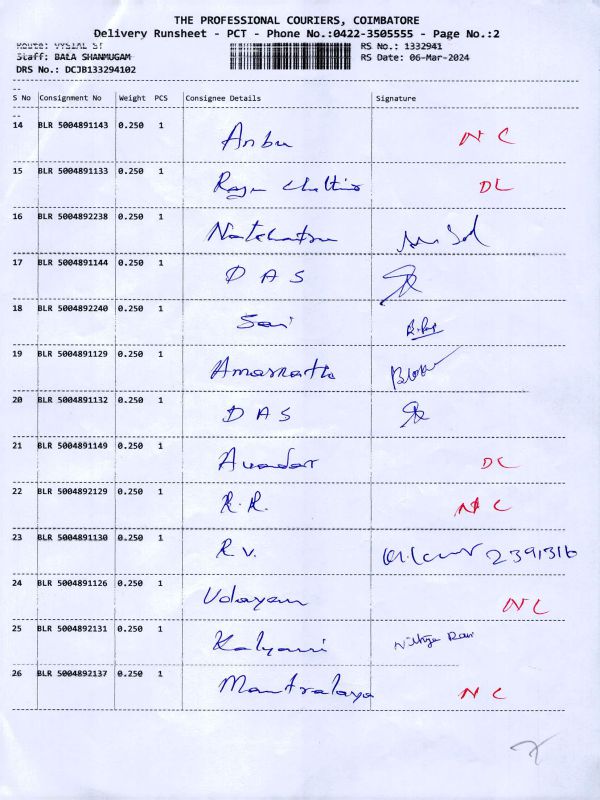 THE PROFESSIONAL COURIERS, COIMBATORE
Delivery Runsheet - PCT - Phone No.:0422-3505555 - Page No.:2
Route: VYSIAL ST
RS No.: 1332941
Staff: BALA SHANMUGAM
RS Date: 06-Mar-2024
DRS No.: DCJB133294102
S No Consignment No Weight PCS Consignee Details Signature
14 BLR 5004891143 0.250 1 Anbu N C
15 BLR 5004891133 0.250 1 DL
16 BLR 5004892238 0.250 1
17 BLR 5004891144 0.250 1 D A S
18 BLR 5004892240 0.250 1
19 BLR 5004891129 0.250 1
20 BLR 5004891132 0.250 1 D A S
21 BLR 5004891149 0.250 1 DL
22 BLR 5004892129 0.250 1 R.R. N C
23 BLR 5004891130 0.250 1 R V.
24 BLR 5004891126 0.250 1 Udayam N C
25 BLR 5004892131 0.250 1 Kalyani
26 BLR 5004892137 0.250 1 Mantralaya N C